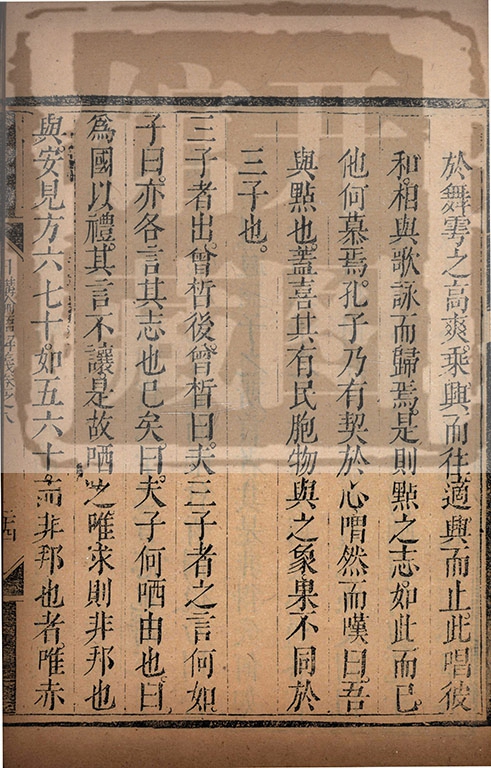 於舞雩之高爽。乘興而往適興而止。此唱彼
和。相與歌詠而歸焉。是則點之志。如此而已。
他何慕焉。孔子乃有契於心。喟然而嘆曰。吾
與點也。蓋喜其有民胞物與之象。果不同於
三子也。
三子者出。曾晳後。曾晳曰。夫三子者之言何如。
子曰。亦各言其志也已矣。曰。夫子何哂由也。曰。
為國以禮。其言不讓。是故哂之。唯求則非邦也
與。安見方六七十。如五六十。而非邦也者。唯赤